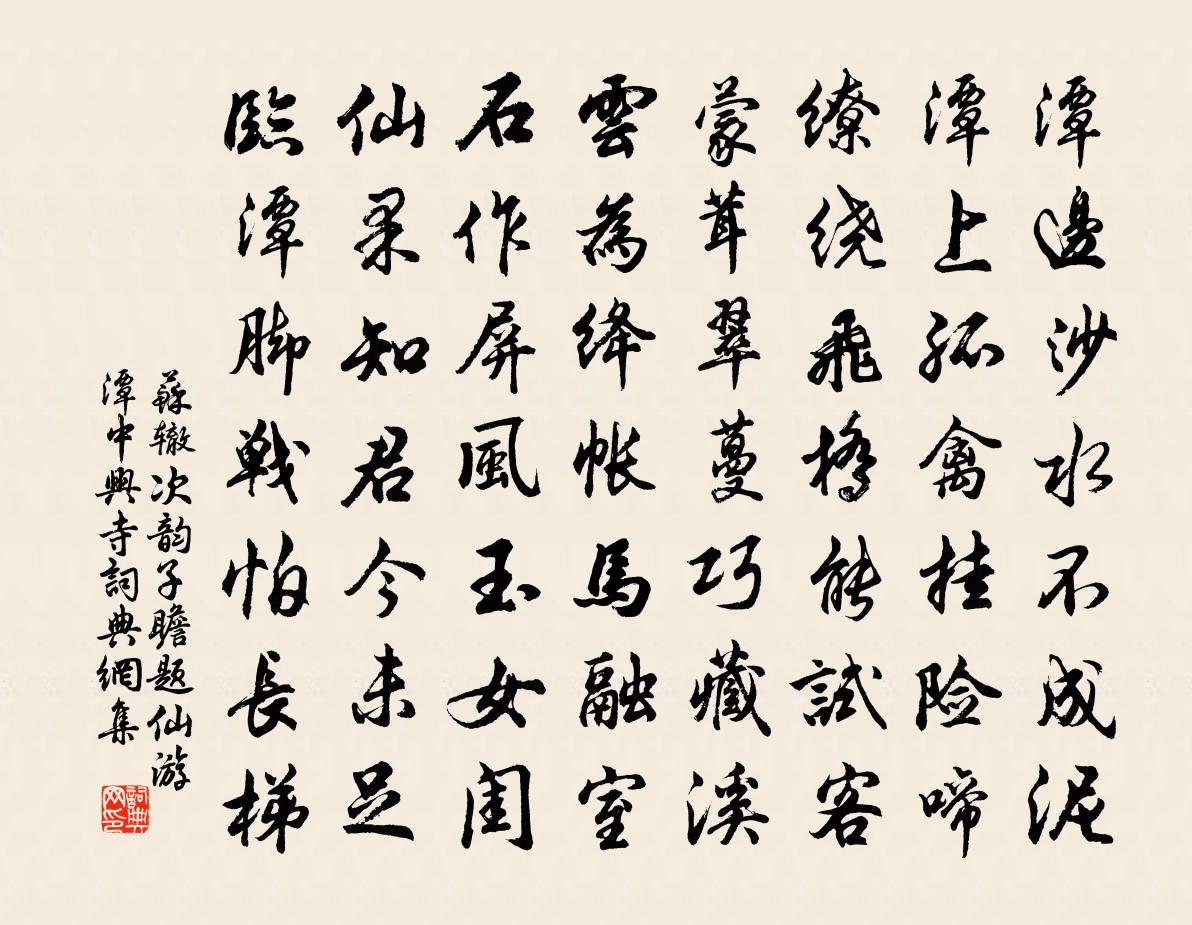 潭邊沙水不成泥
潭上孤禽挂险啼
缭绕飛橋能試客
蒙茸翠蔓巧藏溪
雲為绛帐馬融室
石作屏風玉女闺
仙果知君今未足
臨潭脚戰怕長梯
蘇辙次韵子瞻题仙游
潭中興寺詞典網集
詞典
网印